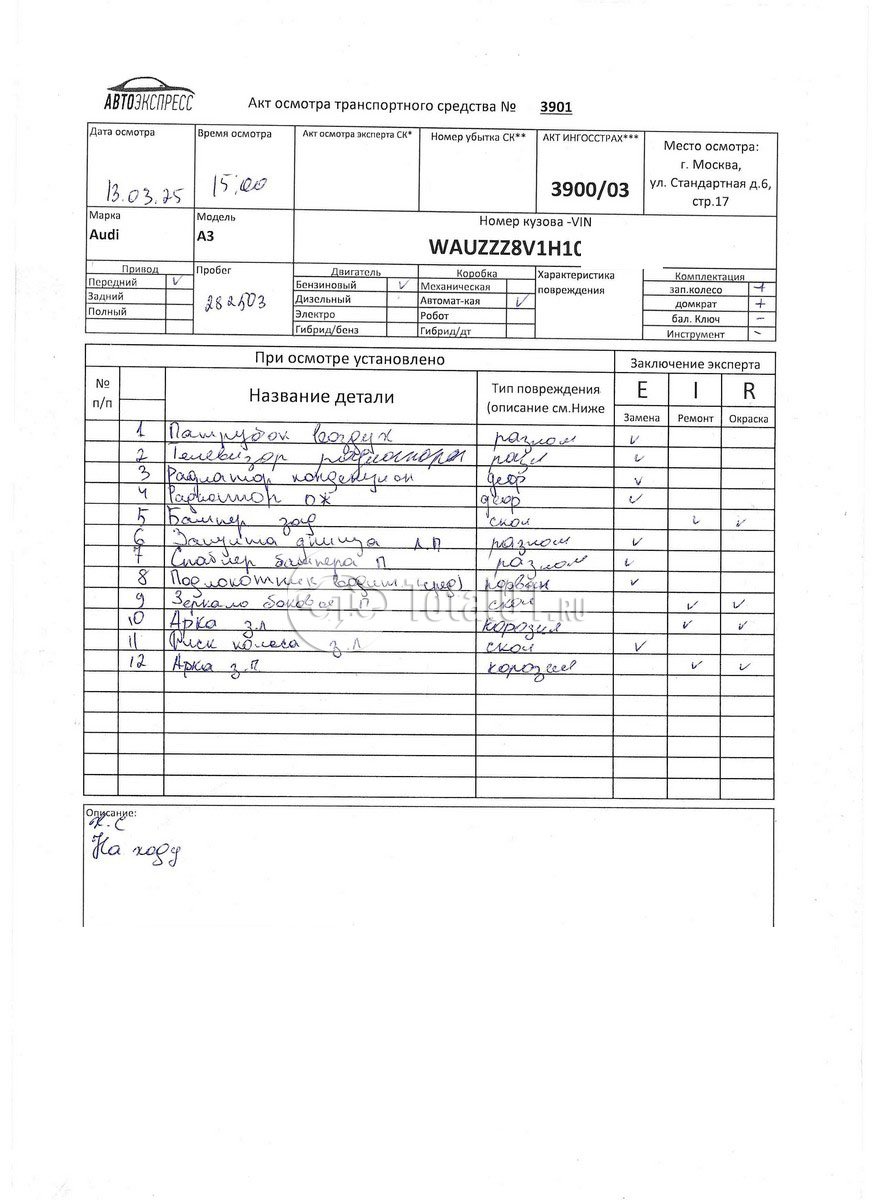 АВТОЭКСПРЕСС
Акт осмотра транспортного средства № 3901
Дата осмотра Время осмотра Акт осмотра эксперта СК* Номер убытка СК** АКТ ИНГОССТРАХ*** Место осмотра:
г. Москва,
13.03.25 15:00 3900/03 ул. Стандартная д.6,
стр.17
Марка Модель Номер кузова -VIN
Audi A3 WAUZZZ8V1H1
Привод Пробег Двигатель Коробка Характеристика Комплектация
Передний ✓ Бензиновый ✓ Механическая повреждения зап.колесо +
Задний 282503 Дизельный Автомат-кая ✓ домкрат +
Полный Электро Робот бал. Ключ -
Гибрид/бенз Гибрид/дт Инструмент -
При осмотре установлено Заключение эксперта
№ п/п Название детали Тип повреждения (описание см.Ниже E I R
Замена Ремонт Окраска
1 Патрубок воздух разлом ✓
2 Телевизор разл ✓
3 Радиатор кондицион деф ✓
4 Радиатор ОЖ дефор ✓
5 Бампер зад скол ✓ ✓
6 Защита днища Л.П разлом ✓
7 Спойлер бампера П разлом ✓
8 Подлокотник порван ✓
9 Зеркало боковое П скол ✓ ✓
10 Арка з.л корозия ✓ ✓
11 Диск колеса з.л скол ✓
12 Арка з.П корозия ✓ ✓
Total01.RU
Описание:
На ходу